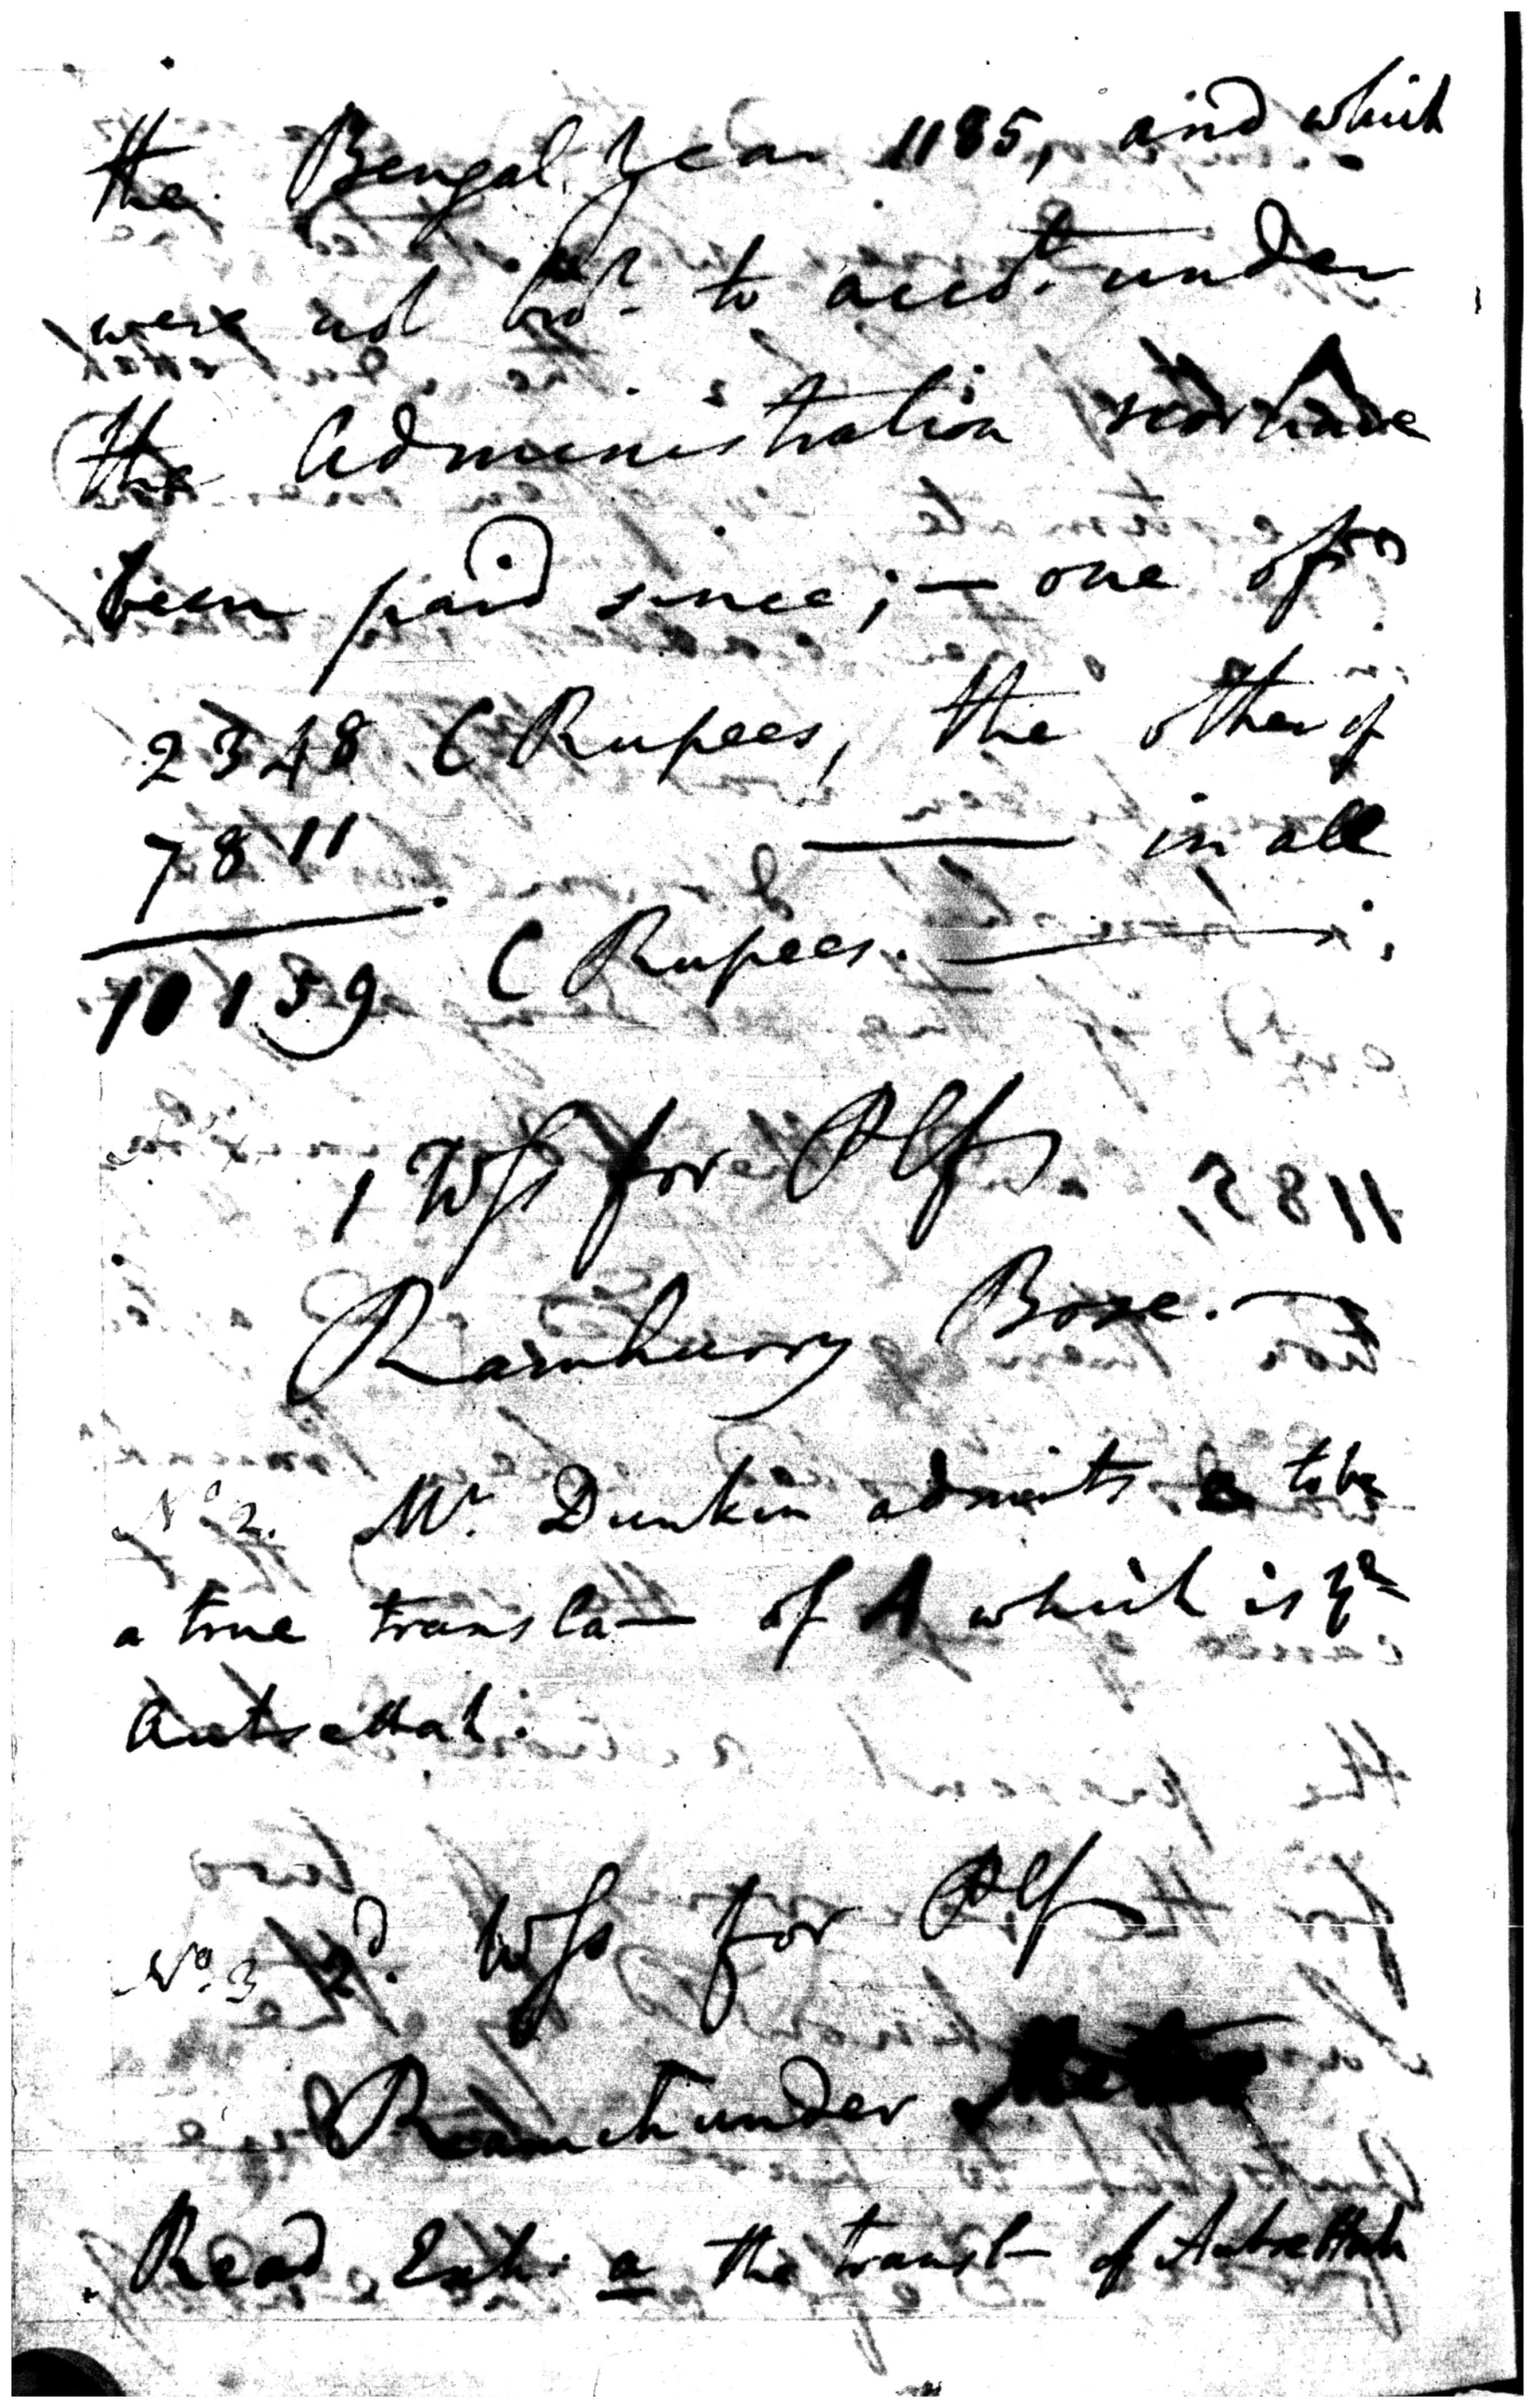 the Bengal Year 1185, and which
were not bro.t to acco.t under
the Administration nor have
been paid since; — one of
2348 C Rupees, the other of
7811 — in all
10159 C Rupees. —
1 Wss for Plfs.
Ramhurry Bose. —
No 2. Mr. Dunkin admits a to be
a true transla— of A which is ye
Autsettah.
No. 3 2d. Wss for Plfs
Ramchunder
Read Exh. a the transl— of Autsettah